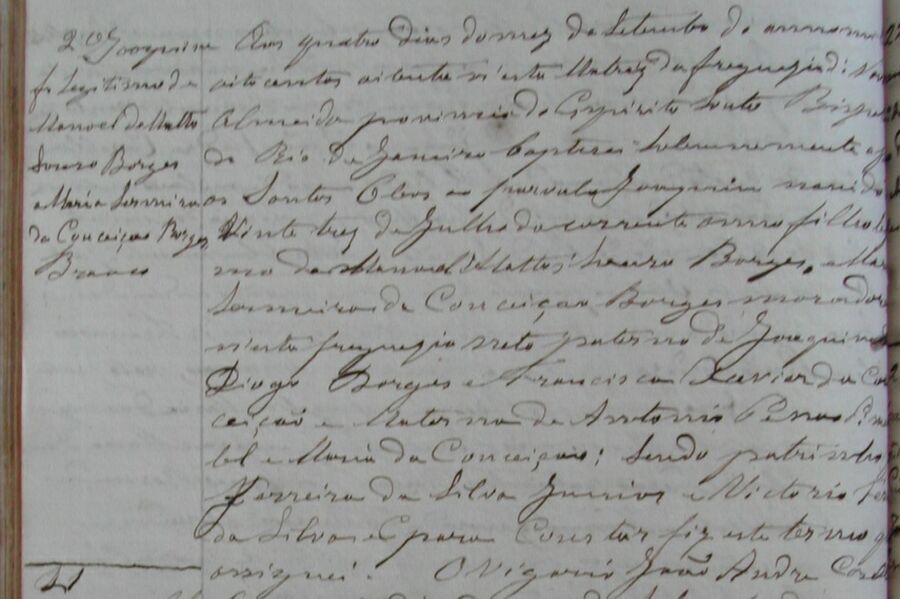 2º Joaquim
f. Legitimo de
Manoel de Mattos
Souro Borges
e Maria
da Conceiçao Borges
Branco
Aos quatro dias do mez de Setembro de anno
oito centos oitenta n'esta Matriz da freguezia de Nova
Almeida provincia do Espirito Santo Bispado
do Rio de Janeiro baptizei solemnemente
os Santos Oleos ao parvulo Joaquim nascido
Vinte trez de Julho do corrente anno filho
mo de Manoel Mattos Borges, e Mar
da Conceiçao Borges moradores
n'esta freguezia neto paterno de Joaquim
Diogo Borges e Francisca Xavier da Con
ceiçaõ e Materna de Antonio
e Maria da Conceiçao; Sendo padrinhos
Ferreira da Silva Junior e Victoria
da Silva e para Constar fiz este termo q
assignei. O Vigario Joaõ Andre
21